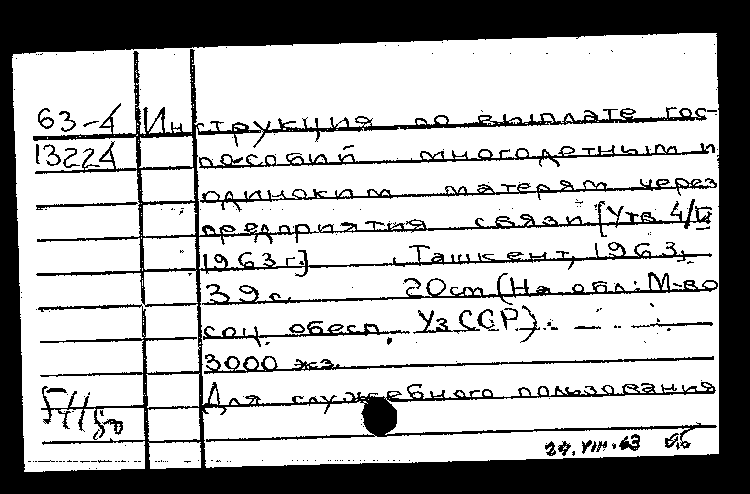 63-4 Инструкция по выплате гос-
13224 пособий многодетным и
одиноким матерям через
предприятия связи [Утв. 4/II
1963 г.] . Ташкент, 1963.
39 с. 20 cm (На обл.: М-во
соц. обесп. Уз ССР).
3000 экз.
Для служебного пользования
24.VIII.63